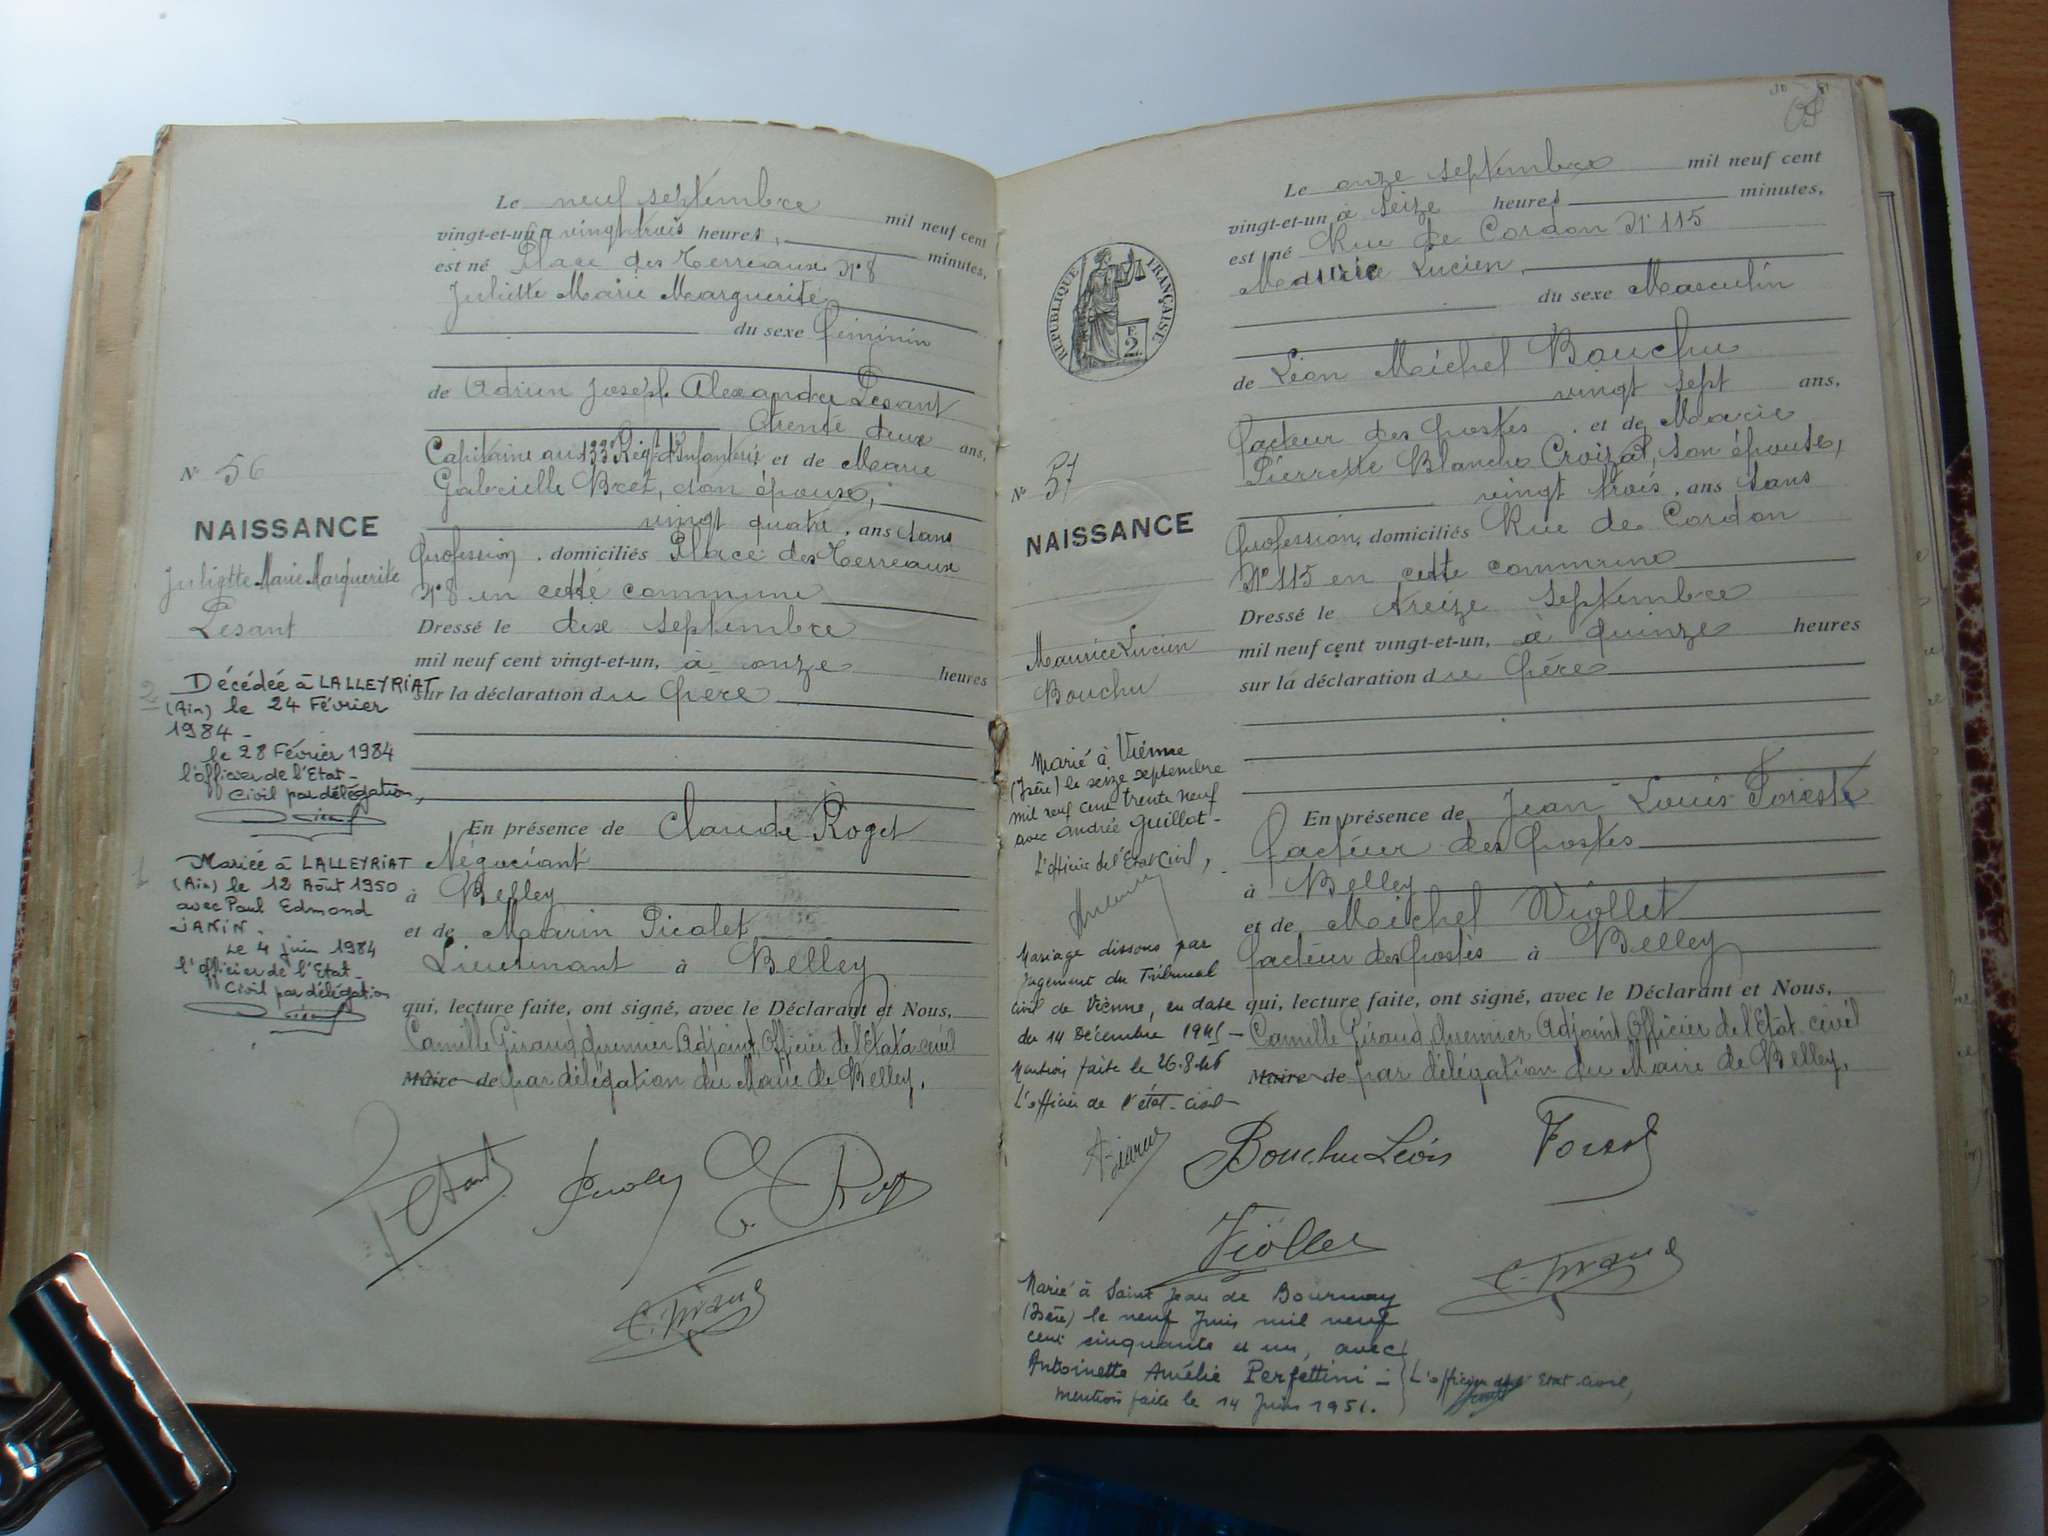 Le neuf septembre mil neuf cent
vingt-et-un à vingt trois heures, minutes,
est né Place des Terreaux N° 8
Juliette Marie Marguerite
du sexe féminin
de Adrien Joseph Alexandre Lesant
trente deux ans,
Capitaine au 133e Régt d'Infanterie et de Marie
Gabrielle Bret, son épouse,
vingt quatre, ans sans
profession, domiciliés Place des Terreaux
N° 8 en cette commune
Dressé le dix septembre
mil neuf cent vingt-et-un, à onze heures
sur la déclaration du père
En présence de Claude Roget
Négociant
à Belley
et de Marin Picolet
Lieutenant à Belley
qui, lecture faite, ont signé, avec le Déclarant et Nous,
Camille Giraud, premier Adjoint, Officier de l'Etat civil
Maire de par délégation du Maire de Belley,
N° 56
NAISSANCE
Juliette Marie Marguerite
Lesant
2
Décédée à LALLEYRIAT
(Ain) le 24 Février
1984 -
le 28 Février 1984
l'officier de l'Etat-
Civil par délégation,
1
Mariée à LALLEYRIAT
(Ain) le 12 Août 1950
avec Paul Edmond
JANIN.
Le 4 juin 1984
l'officier de l'Etat-
Civil par délégation
C. Giraud
Le onze septembre mil neuf cent
vingt-et-un à seize heures minutes,
est né Rue de Cordon N° 115
Maurice Lucien
du sexe Masculin
de Léon Michel Bouchu
vingt sept ans,
facteur des postes, et de Marie
Pierrette Blanche Croizat, son épouse,
vingt trois, ans sans
profession, domiciliés Rue de Cordon
N° 115 en cette commune
Dressé le treize septembre
mil neuf cent vingt-et-un, à quinze heures
sur la déclaration du père
En présence de Jean Louis Forest
facteur des postes
à Belley
et de Michel Viollet
facteur des postes à Belley
qui, lecture faite, ont signé, avec le Déclarant et Nous,
Camille Giraud, premier Adjoint, Officier de l'Etat civil
Maire de par délégation du Maire de Belley,
RÉPUBLIQUE FRANÇAISE
2
N° 57
NAISSANCE
Maurice Lucien
Bouchu
Marié à Vienne
(Isère) le seize septembre
mil neuf cent trente neuf
avec Andrée Guillot -
L'officier de l'Etat Civil,
Mariage dissous par
Jugement du Tribunal
Civil de Vienne, en date
du 14 Décembre 1945 -
Mention faite le 26.8.46
L'officier de l'état-civil
Bouchu Léon Forest
Viollet
C. Giraud
Marié à Saint Jean de Bournay
(Isère) le neuf Juin mil neuf
cent cinquante et un, avec
Antoinette Amélie Perfettini -
mention faite le 14 Juin 1951.
L'officier de l'Etat-civil,